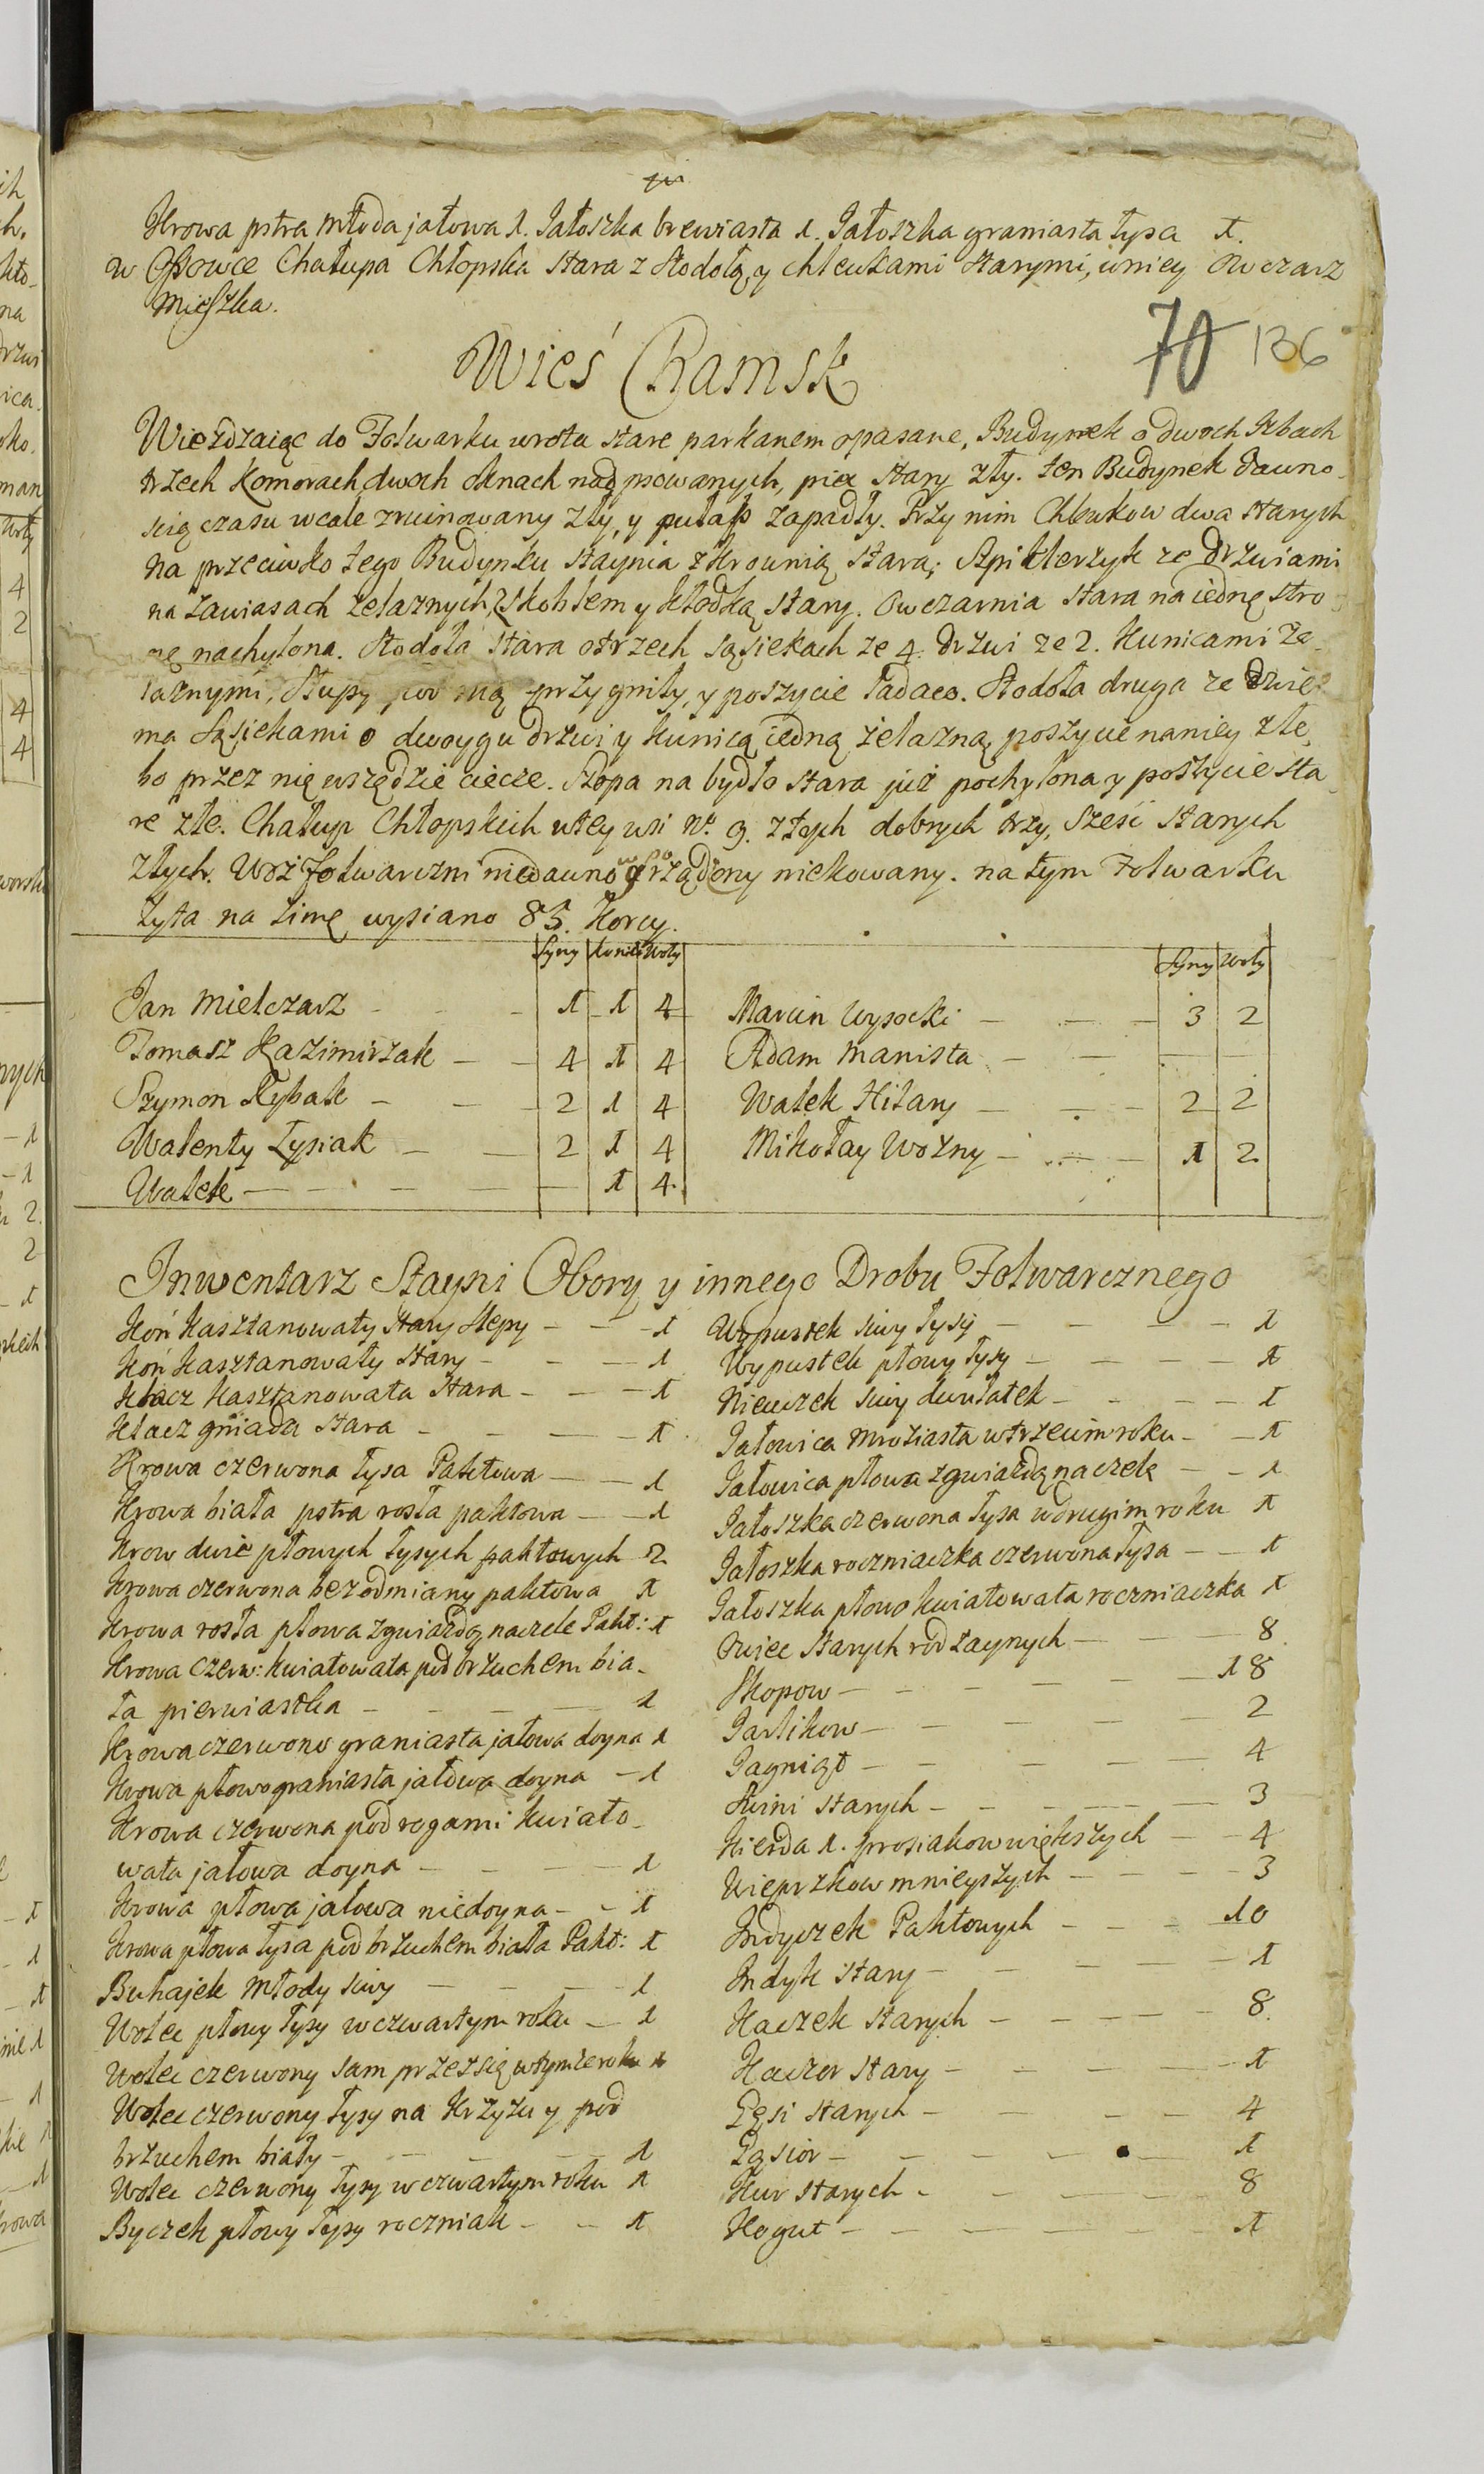 Krowa pstra młoda jałowa 1. Jałoszka brewiasta 1. Jałoszka graniasta łysa 1.
w Ossowce Chałupa Chłopska stara z stodołą, y chlewkami starymi, wniey Owczarz
mieszka.
70 136
Wieś Chamsk
Wieżdzaiąc do Folwarku wrota stare parkanem opasane, Budynek o dwoch Izbach
trzech Komorach, dwoch oknach nadpsowanych, piec stary zły. ten Budynek dawno
scią czasu wcale zruinowany zły, y pułap zapadły. Przy nim Chlewkow dwa starych
na przeciwko tego Budynku staynia z krownią stara; Spiklerzyk ze drzwiami
na zawiasach żelaznych, zskoblem y kłodką stary. Owczarnia stara na iednę stro
nę nachylona. Stodoła stara o trzech sąsiekach ze 4. drzwi ze 2. Kunicami że
laznymi, Słupy przygniły, y poszycie ladaco. Stodoła druga ze dwie
ma Sąsiekami o dwoygu drzwi y kunicą iedną żelazną, poszycie naniey złe,
bo przez nię wszędzie ciecze. Szopa na bydło stara już pochylona y poszycie sta
re złe. Chałup Chłopskich wtey wsi No. 9. z tych dobrych trzy, sześć starych
złych. Woz folwarczni niedawno wporządzony niekowany. na tym Folwarku
żyta na zimę wysiano 85. Korcy.
Syny Konie Woły Syny Woły
Jan Mielczarz - - - 1 1 4 Marcin Wysocki - - - 3 2
Tomasz Kazimirzak - - 4 1 4 Adam Manista - - -
Szymon Rybak - - - 2 1 4 Walek Hilary - - - 2 2
Walenty Łysiak - - 2 1 4 Mikołay Wozny - - - 1 2
Walek - - - - - - 1 4.
Inwentarz Stayni Obory y innego Drobu Folwarcznego
Koń kasztanowaty stary slepy - - - 1
Koń kasztanowaty stary - - - 1
Klacz kasztanowata stara - - - 1
Klacz gniada stara - - - - 1
Krowa czerwona łysa Paktowa - - 1
Krowa biała pstra rosła paktowa - - 1
Krow dwie płowych łysych paktowych 2.
Krowa czerwona bez odmiany paktowa 1
Krowa rosła płowa zgwiazdą naczele Pakt: 1
Krowa czerw: kwiatowata pod brzuchem bia-
ła pierwiastka - - - - 1
Krowa czerwono graniasta jałowa doyna 1
Krowa płowograniasta jałowa doyna - 1
Krowa czerwona pod rogami kwiato-
wata jałowa doyna - - - - 1
Krowa płowa jałowa niedoyna - - 1
Krowa płowa łysa pod brzuchem biała Pakt: 1
Buhajek młody siwy - - - - 1
Wolec płowy łysy w czwartym roku - 1
Wolec czerwony sam przez się wtymże roku 1
Wolec czerwony łysy na krzyżu y pod
brzuchem biały - - - - 1
Wolec czerwony łysy w czwartym roku 1
Byczek płowy łysy roczniak - - 1
Wypustek siwy łysy - - - - 1
Wypustek płowy łysy - - - - 1
Nieuczek siwy dwulatek - - - - 1
Jałowica mroziasta wtrzecim roku - - 1
Jałowica płowa zgwiazdą na czele - - 1
Jałoszka czerwona łysa wdrugim roku 1
Jałoszka roczniaczka czerwona łysa - - 1
Jałoszka płowo kwiatowata roczniaczka 1
Owiec starych rodzaynych - - - 8.
Skopow - - - - - 18
Jarlikow - - - - - 2
Jagniąt - - - - - 4
Swini starych - - - - - 3
Kierda 1. prosiakow większych - - 4
Wieprzkow mnieyszych - - - - 3
Indyczek Paktowych - - - 10
Indyk stary - - - - - 1
Kaczek starych - - - - 8.
Kaczor stary - - - - - 1
Gęsi starych - - - - 4
Gąsior - - - - - 1
Kur starych - - - - 8
Kogut - - - - - - 1